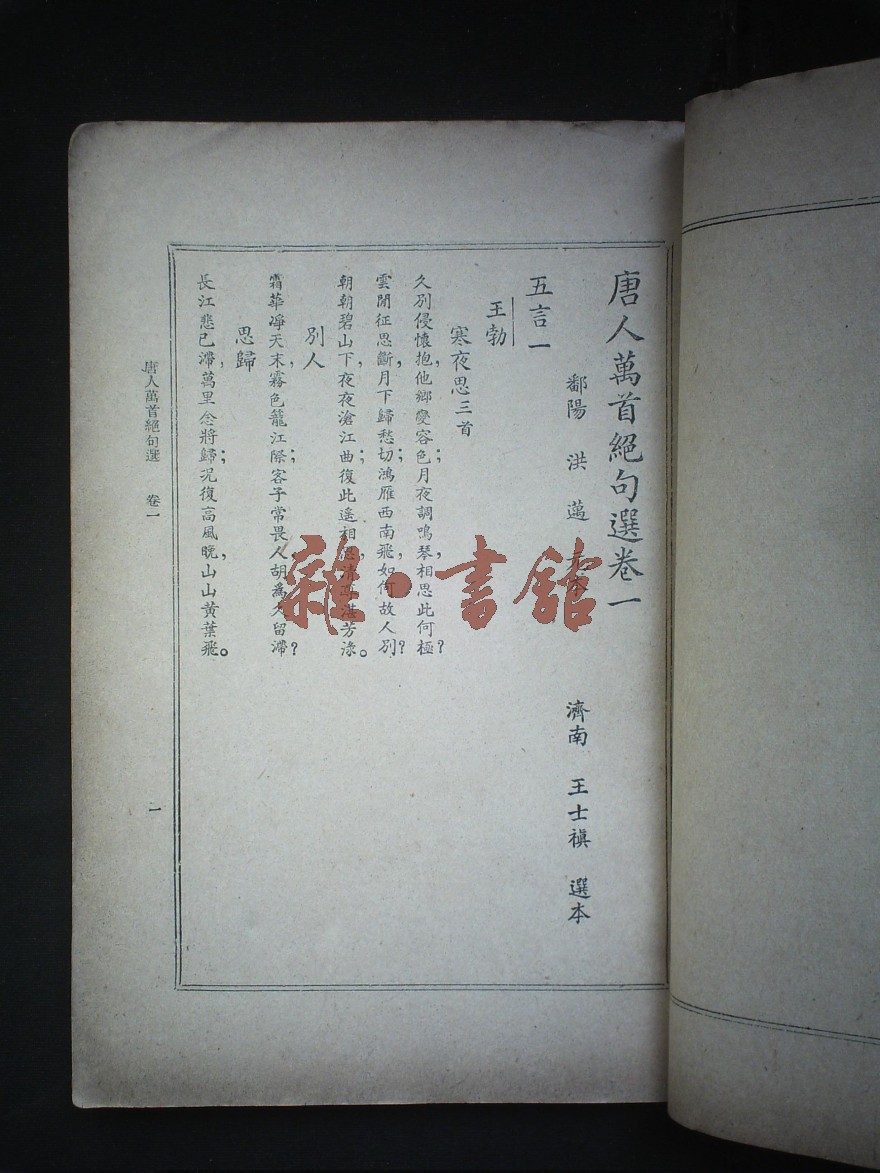 唐人萬首絕句選卷一
鄱陽 洪邁 元本 濟南 王士禛 選本
五言一
王勃
寒夜思三首
久別侵懷抱,他鄉變容色;月夜調鳴琴,相思此何極?
雲間征思斷,月下歸愁切;鴻雁西南飛,如何故人別?
朝朝碧山下,夜夜滄江曲;復此遙相思,清尊湛芳淥。
別人
霜華淨天末,霧色籠江際;客子常畏人,胡爲久留滯?
思歸
長江悲已滯,萬里念將歸;況復高風晚,山山黃葉飛。
唐人萬首絕句選 卷一
一
雜·書館